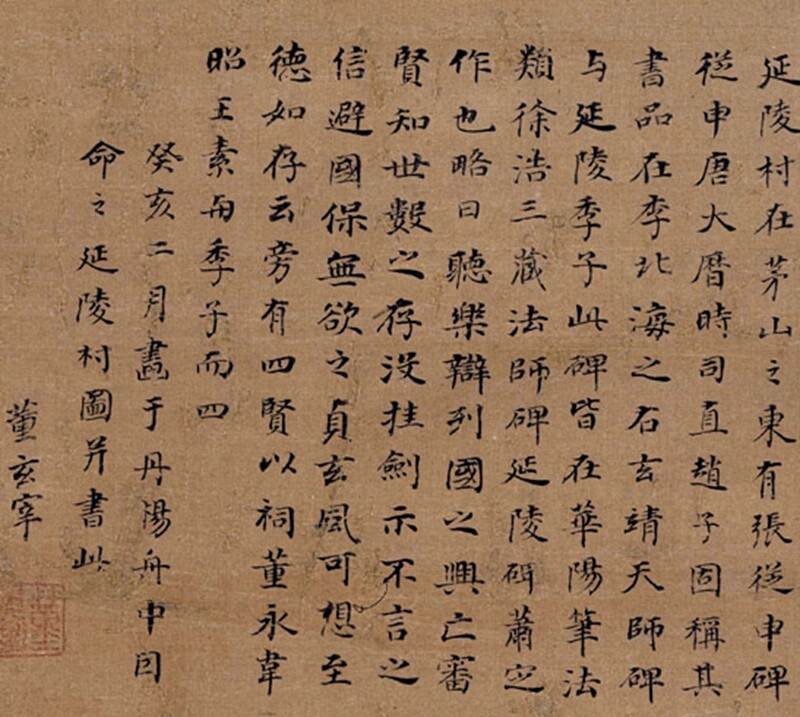 延陵村在茅山之東有張從申碑
從申唐大曆時司直趙子固稱其
書品在李北海之右玄靖天師碑
与延陵季子此碑皆在華陽筆法
類徐浩三藏法師碑延陵碑蕭定
作也略曰聽樂辯列國之興亡審
賢知世數之存没挂劍示不言之
信避國保無欲之貞玄風可想至
德如存云旁有四賢以祠董永韋
昭王素与季子而四
癸亥二月畫于丹陽舟中因
命之延陵村圖并書此
董玄宰